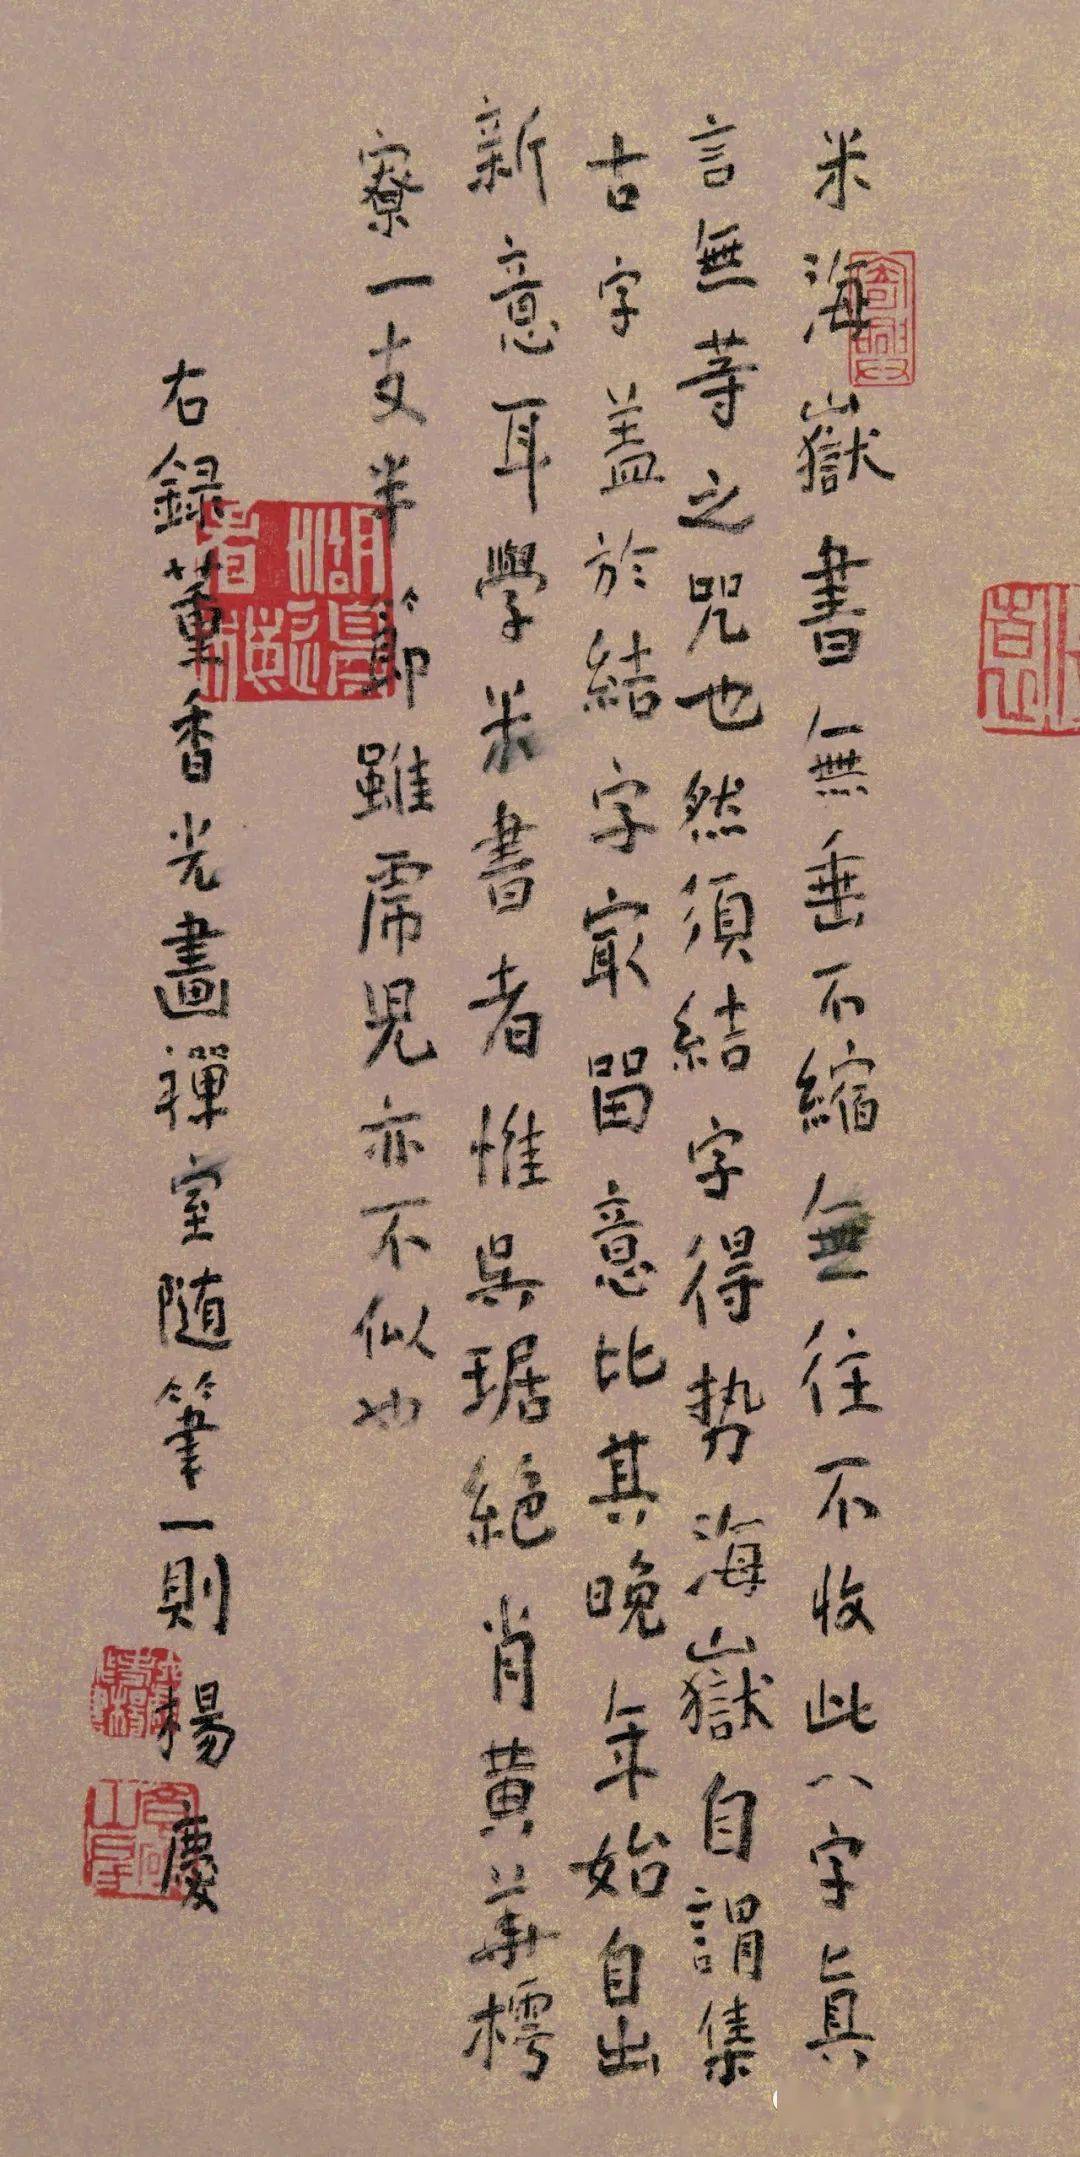 米海嶽書無垂不縮無往不收此八字眞
言無等之咒也然須結字得势海嶽自謂集
古字蓋於結字冣留意比其晚年始自出
新意耳學米書者惟吳琚絕肖黃華樗
寮一支半節雖虎兒亦不似也
右録董香光畫禪室随筆一則楊慶